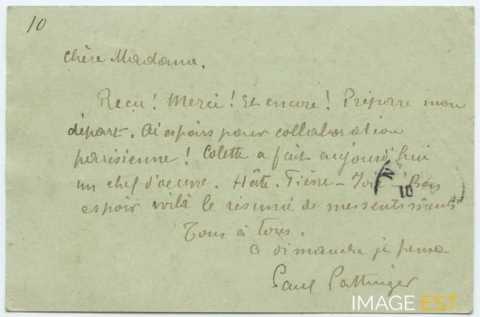 10
Chère Madame.
Reçu! Merci! Et encore! Prépare mon
départ. Ai espoirs pour collaboration
parisienne! Colette a fait aujourd'hui
un chef d'oeuvre. Hâte. Fièvre - Joie
10
espoir voilà le résumé de mes sentiments
Tous à tous.
à dimanche je pense
Paul Pattinger
IMAGE EST